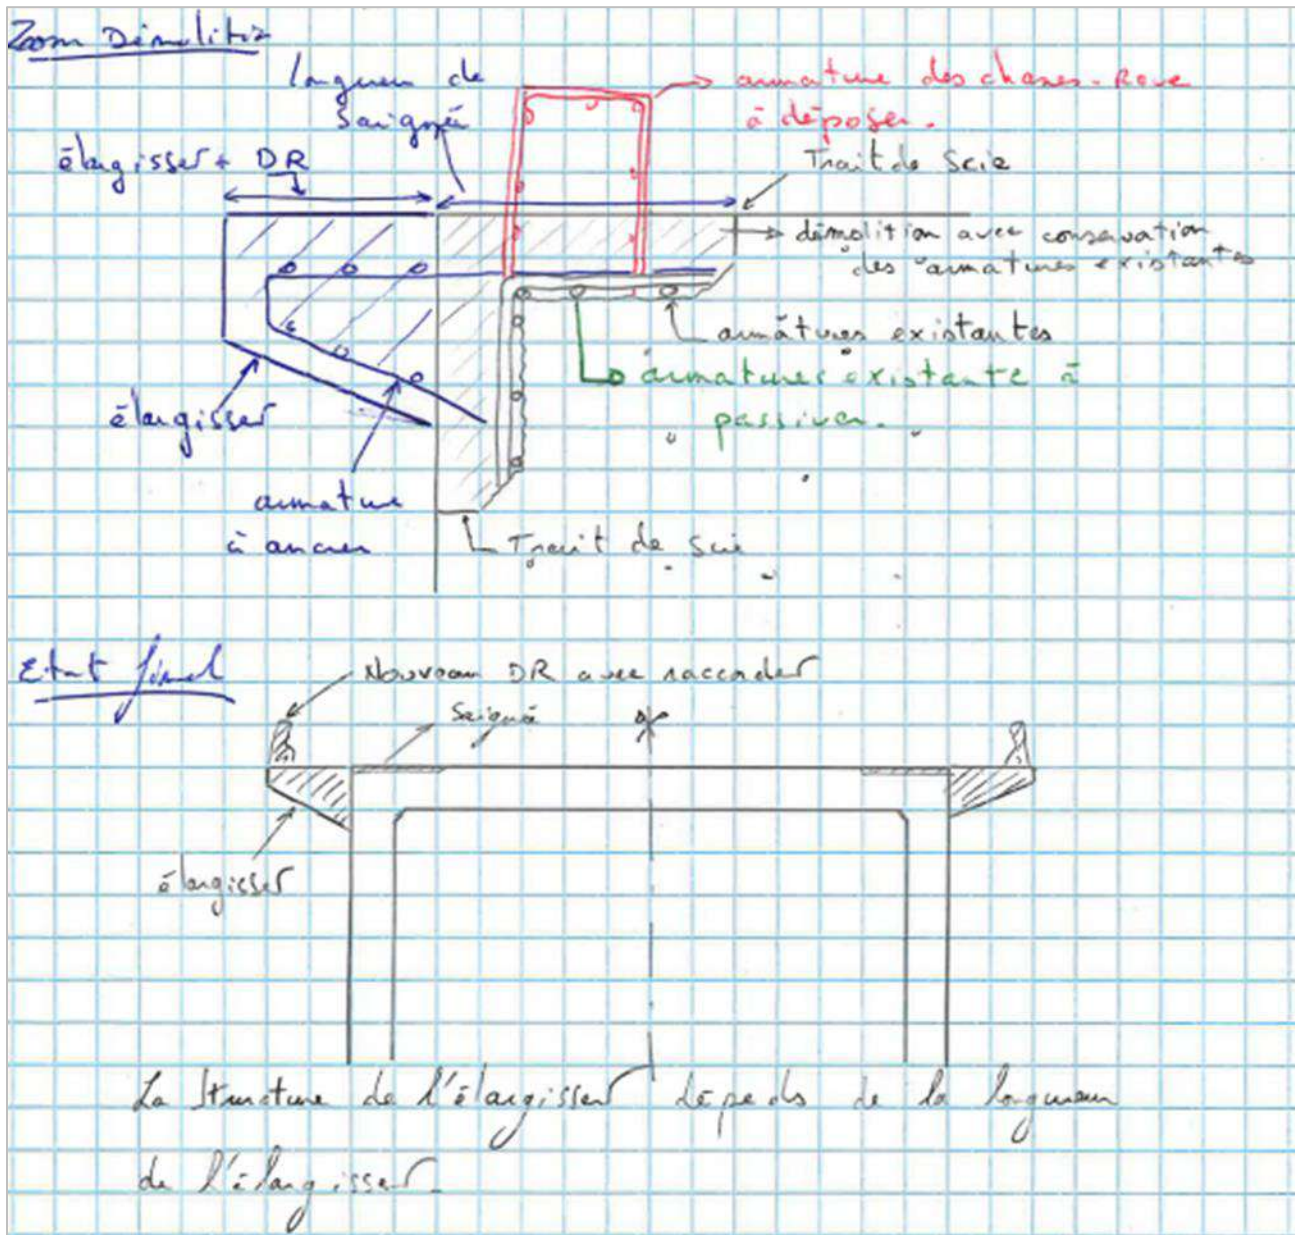 Zoom Démolition
longueur de
Saignée
armature des chasse-Roue
à déposer.
élargissert + DR
Trait de Scie
démolition avec conservation
des armatures existantes
armatures existantes
armatures existante à
passiver.
élargissert
armature
à ancrer
Trait de Scie
Etat final
Nouveau DR avec raccorder
Saignée
élargissert
La structure de l'élargissert dépends de la longueur
de l'élargissert.